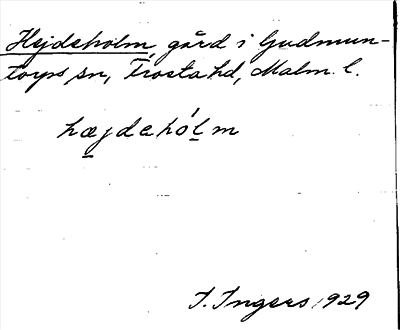 Hejdeholm, gård i Gudmun-
torps sn, Frosta hd, Malm. l.
hæjdehólm
I. Ingers 1929